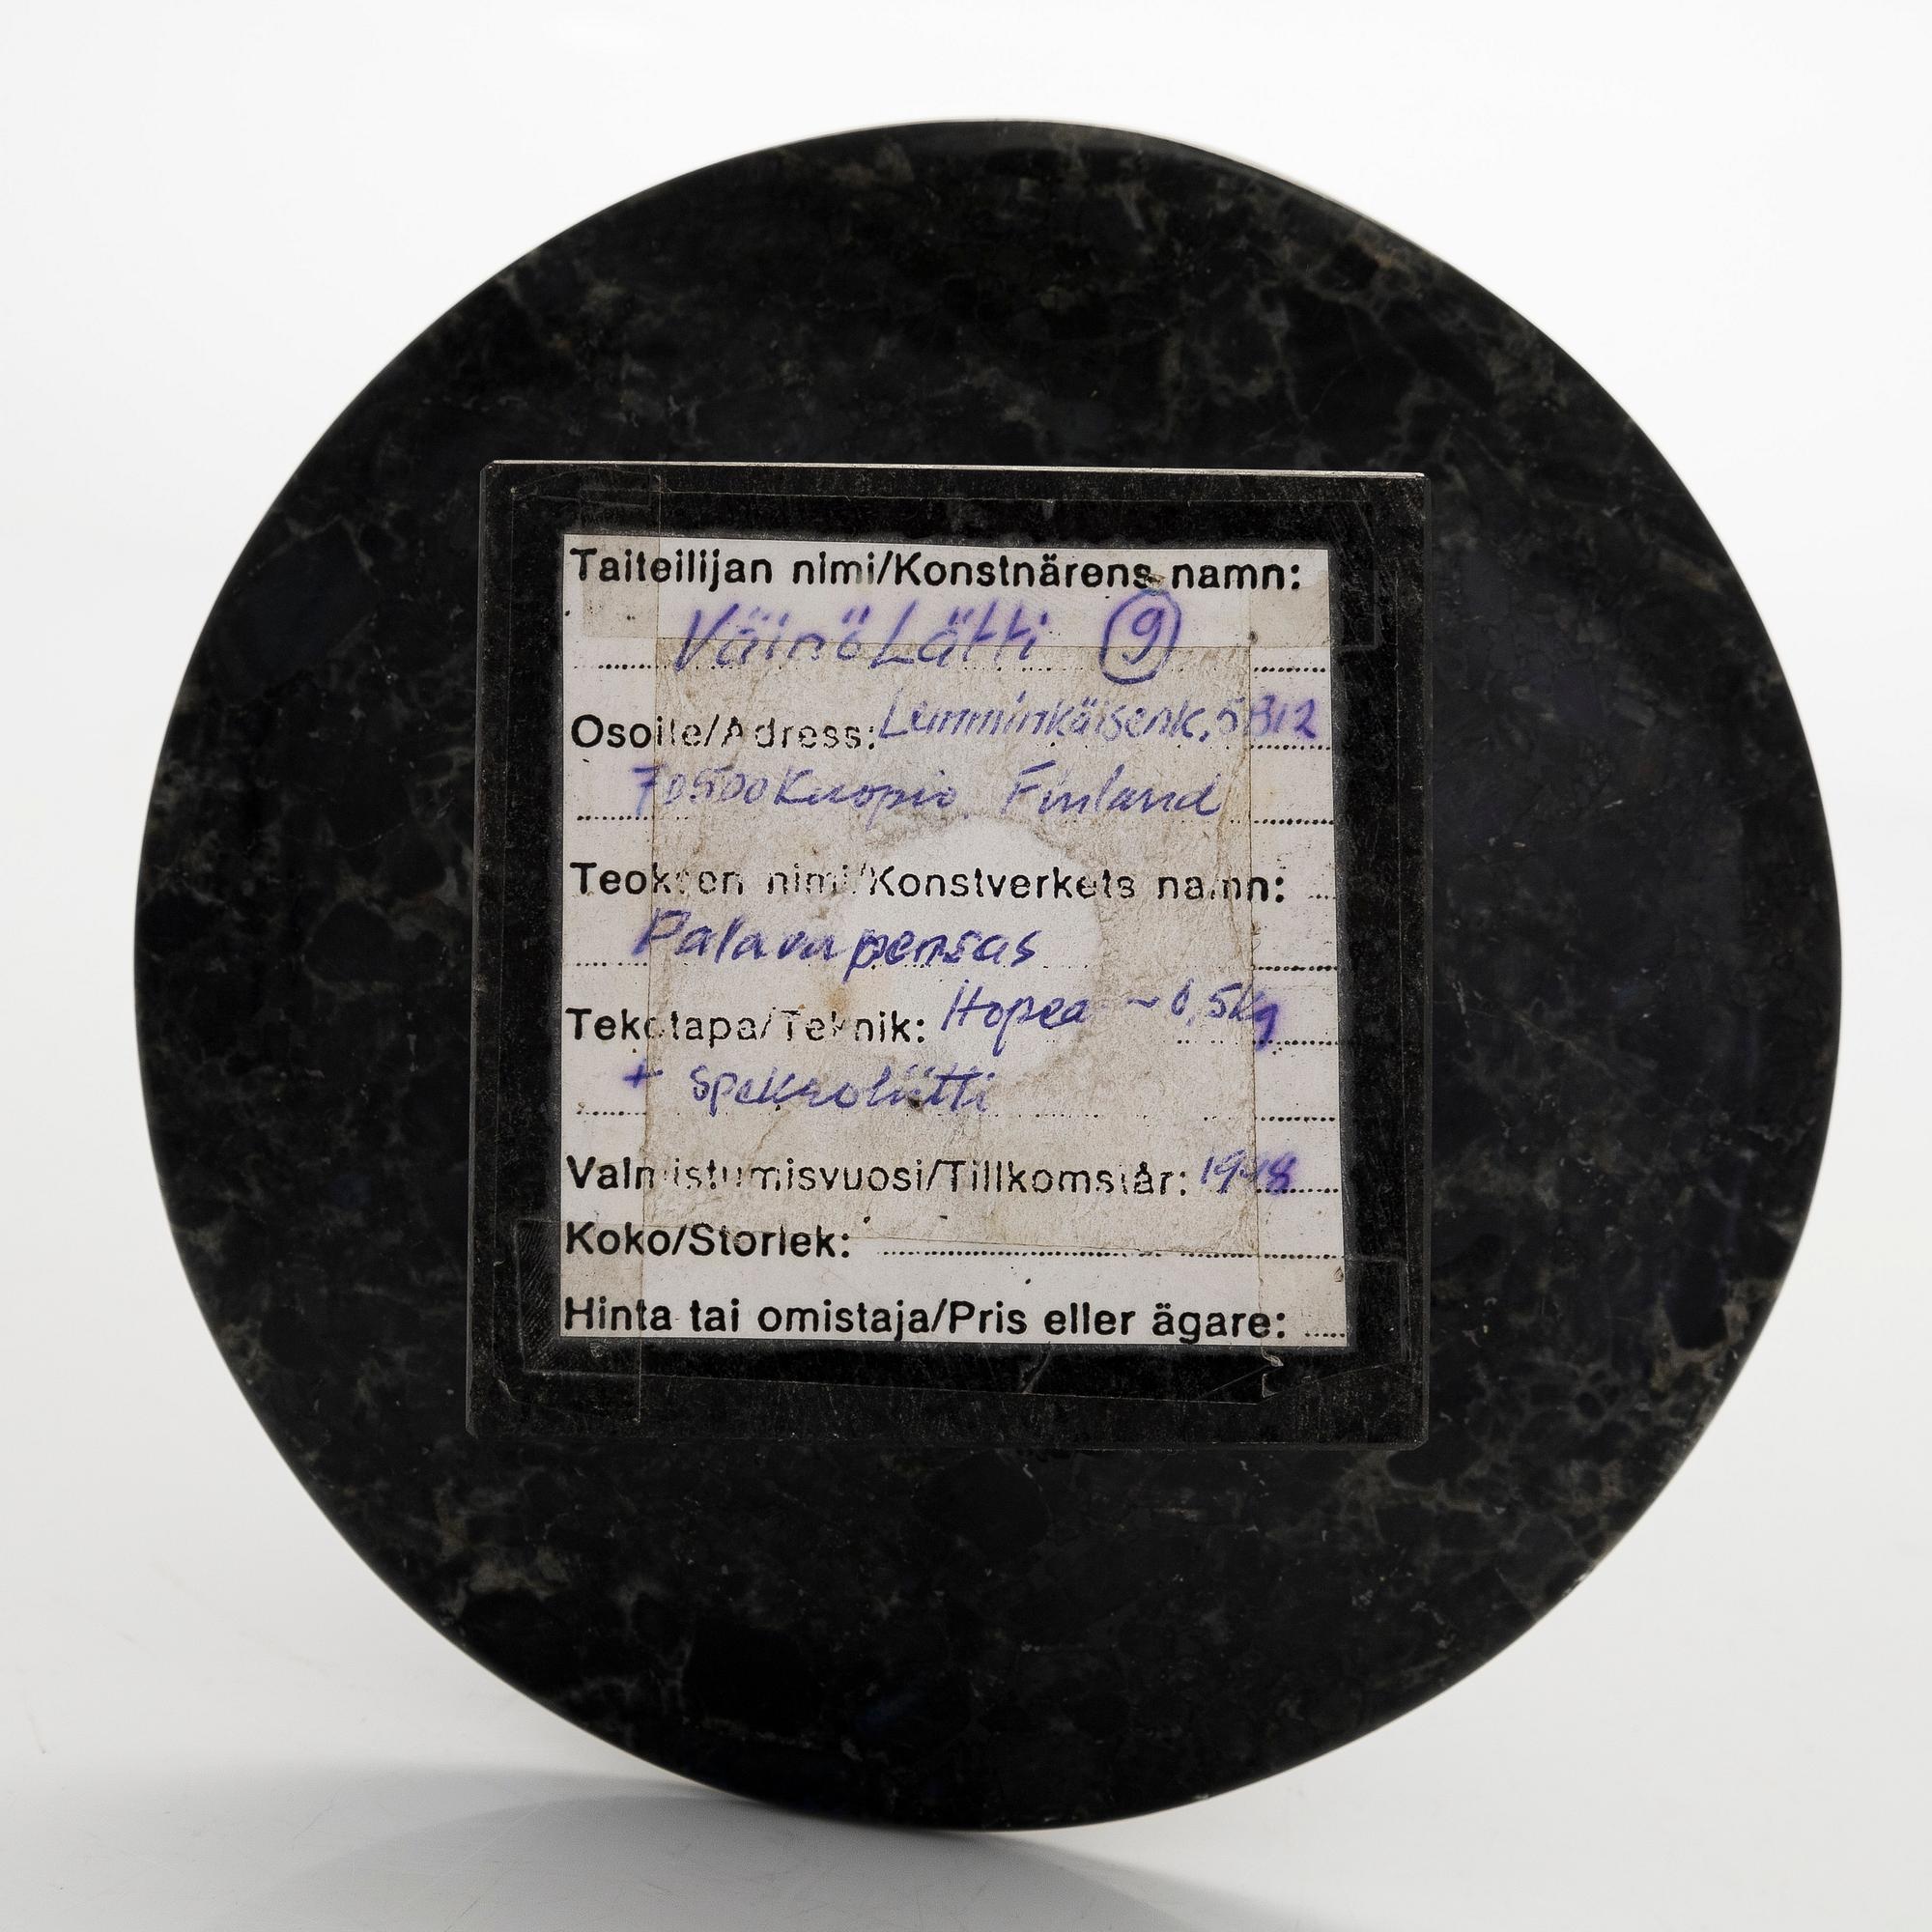 Taiteilijan nimi/Konstnärens namn:
Väinö Lätti 9
Osoite/Adress: Lemminkäisenk. 5B12
70500 Kuopio Finland
Teoksen nimi/Konstverkets namn:
Palava pensas
Tekotapa/Teknik: Hopea ~0,5kg
+ Spektroliitti
Valmistumisvuosi/Tillkomstår:
Koko/Storlek:
Hinta tai omistaja/Pris eller ägare: